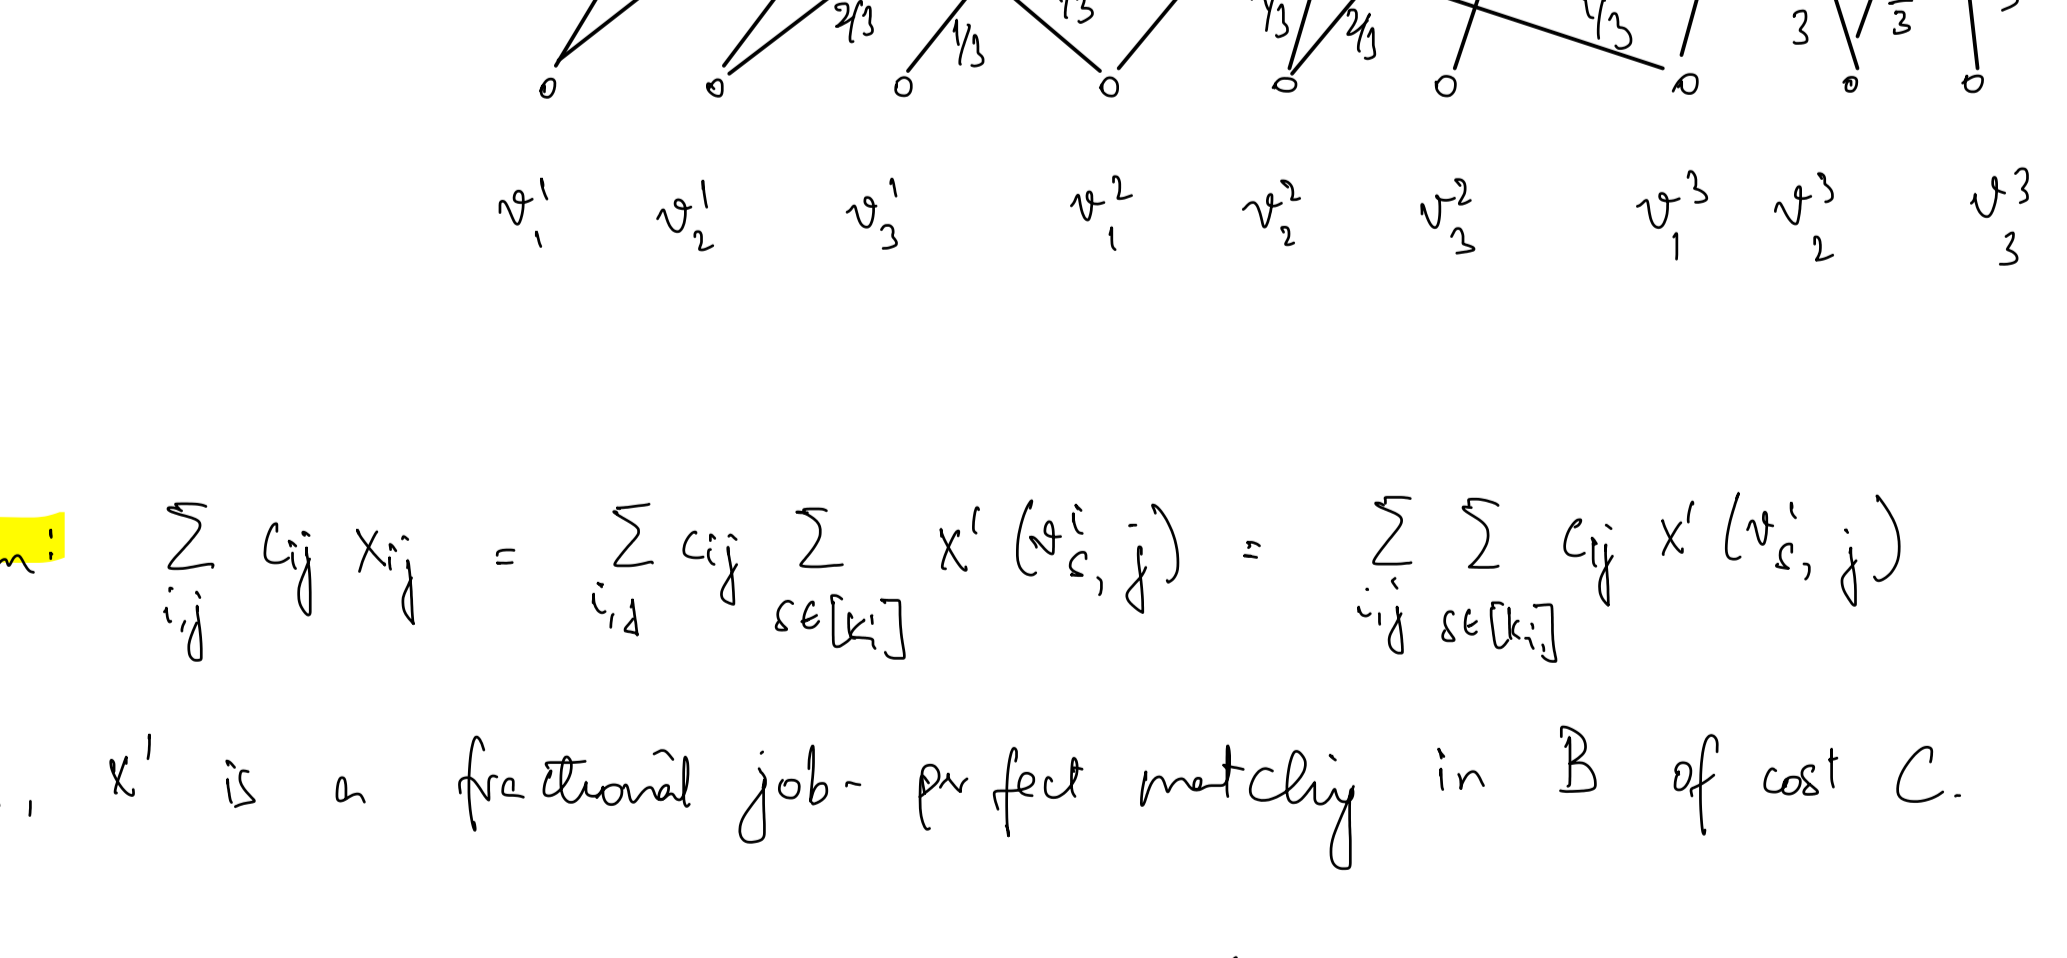 2/3 1/3 1/3 1/3 2/3 1/3 3 3
v¹₁ v¹₂ v¹₃ v²₁ v²₂ v²₃ v³₁ v³₂ v³₃
: ∑_{i,j} c_{ij} x_{ij} = ∑_{i,j} c_{ij} ∑_{s∈[k_i]} x' (v^i_s, j) = ∑_{i,j} ∑_{s∈[k_i]} c_{ij} x' (v^i_s, j)
, x' is a fractional job-perfect matching in B of cost C.